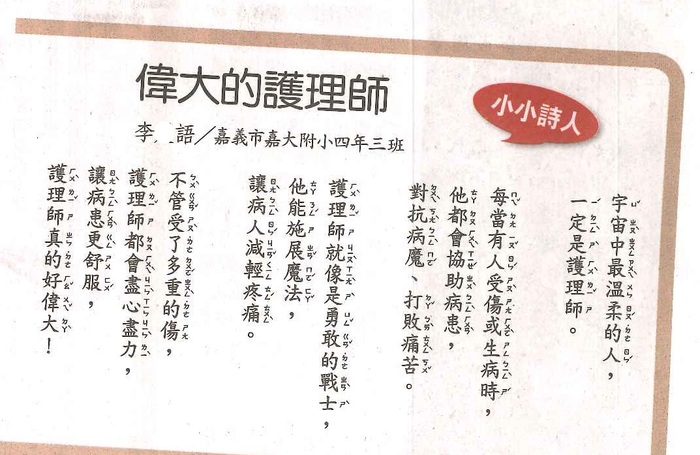 小小詩人
偉大的護理師
李 語／嘉義市嘉大附小四年三班
宇宙中最溫柔的人，
一定是護理師。
每當有人受傷或生病時，
他都會協助病患，
對抗病魔、打敗痛苦。
護理師就像是勇敢的戰士，
他能施展魔法，
讓病人減輕疼痛。
不管受了多重的傷，
護理師都會盡心盡力，
讓病患更舒服，
護理師真的好偉大！